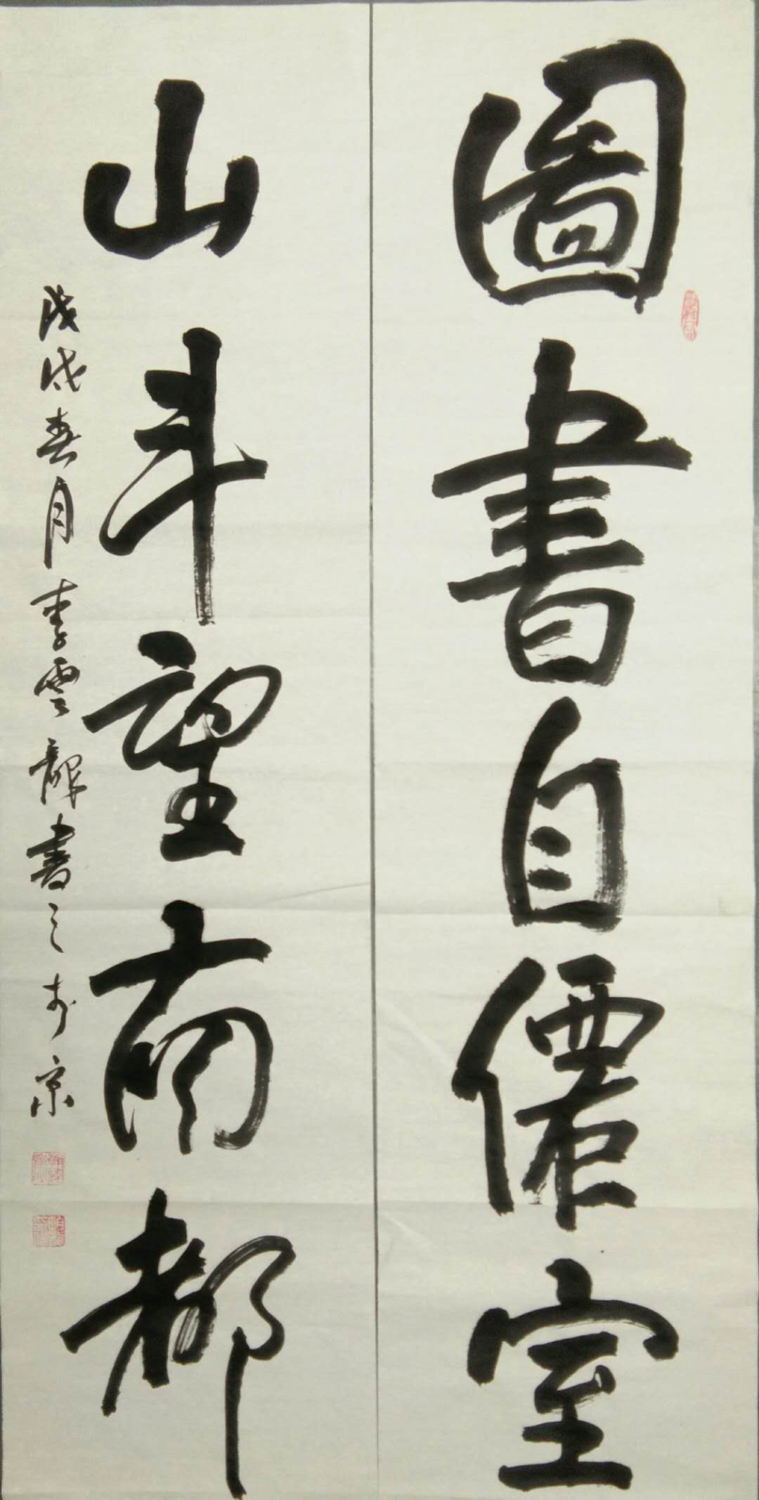 圖書自僊室
山斗望南都
戊戌春月李雲龍書之於京